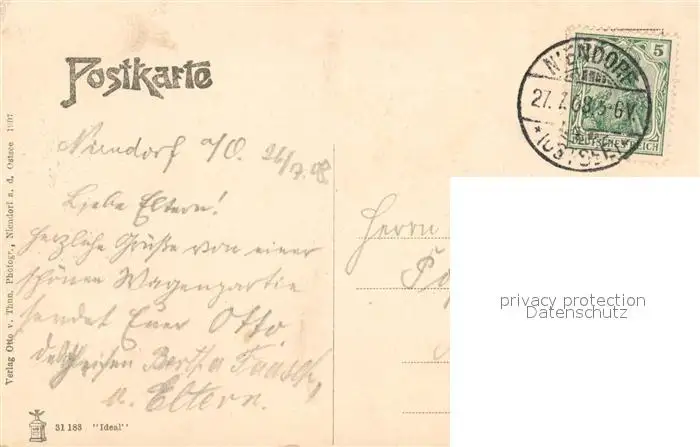 Postkarte
5
DEUTSCHES REICH
NIENDORF
27.7.08 5-6V
*(OSTSEE)*
Niendorf a/O. 26/7.08
Liebe Eltern!
Herzliche Grüße von einer
schönen Wagenpartie
sendet Euer Otto.
desgleichen Bertha
u. Eltern.
Herrn
privacy protection
Datenschutz
Verlag Otto v. Thun, Photogr., Niendorf a. d. Ostsee 1907
31 183 "Ideal"